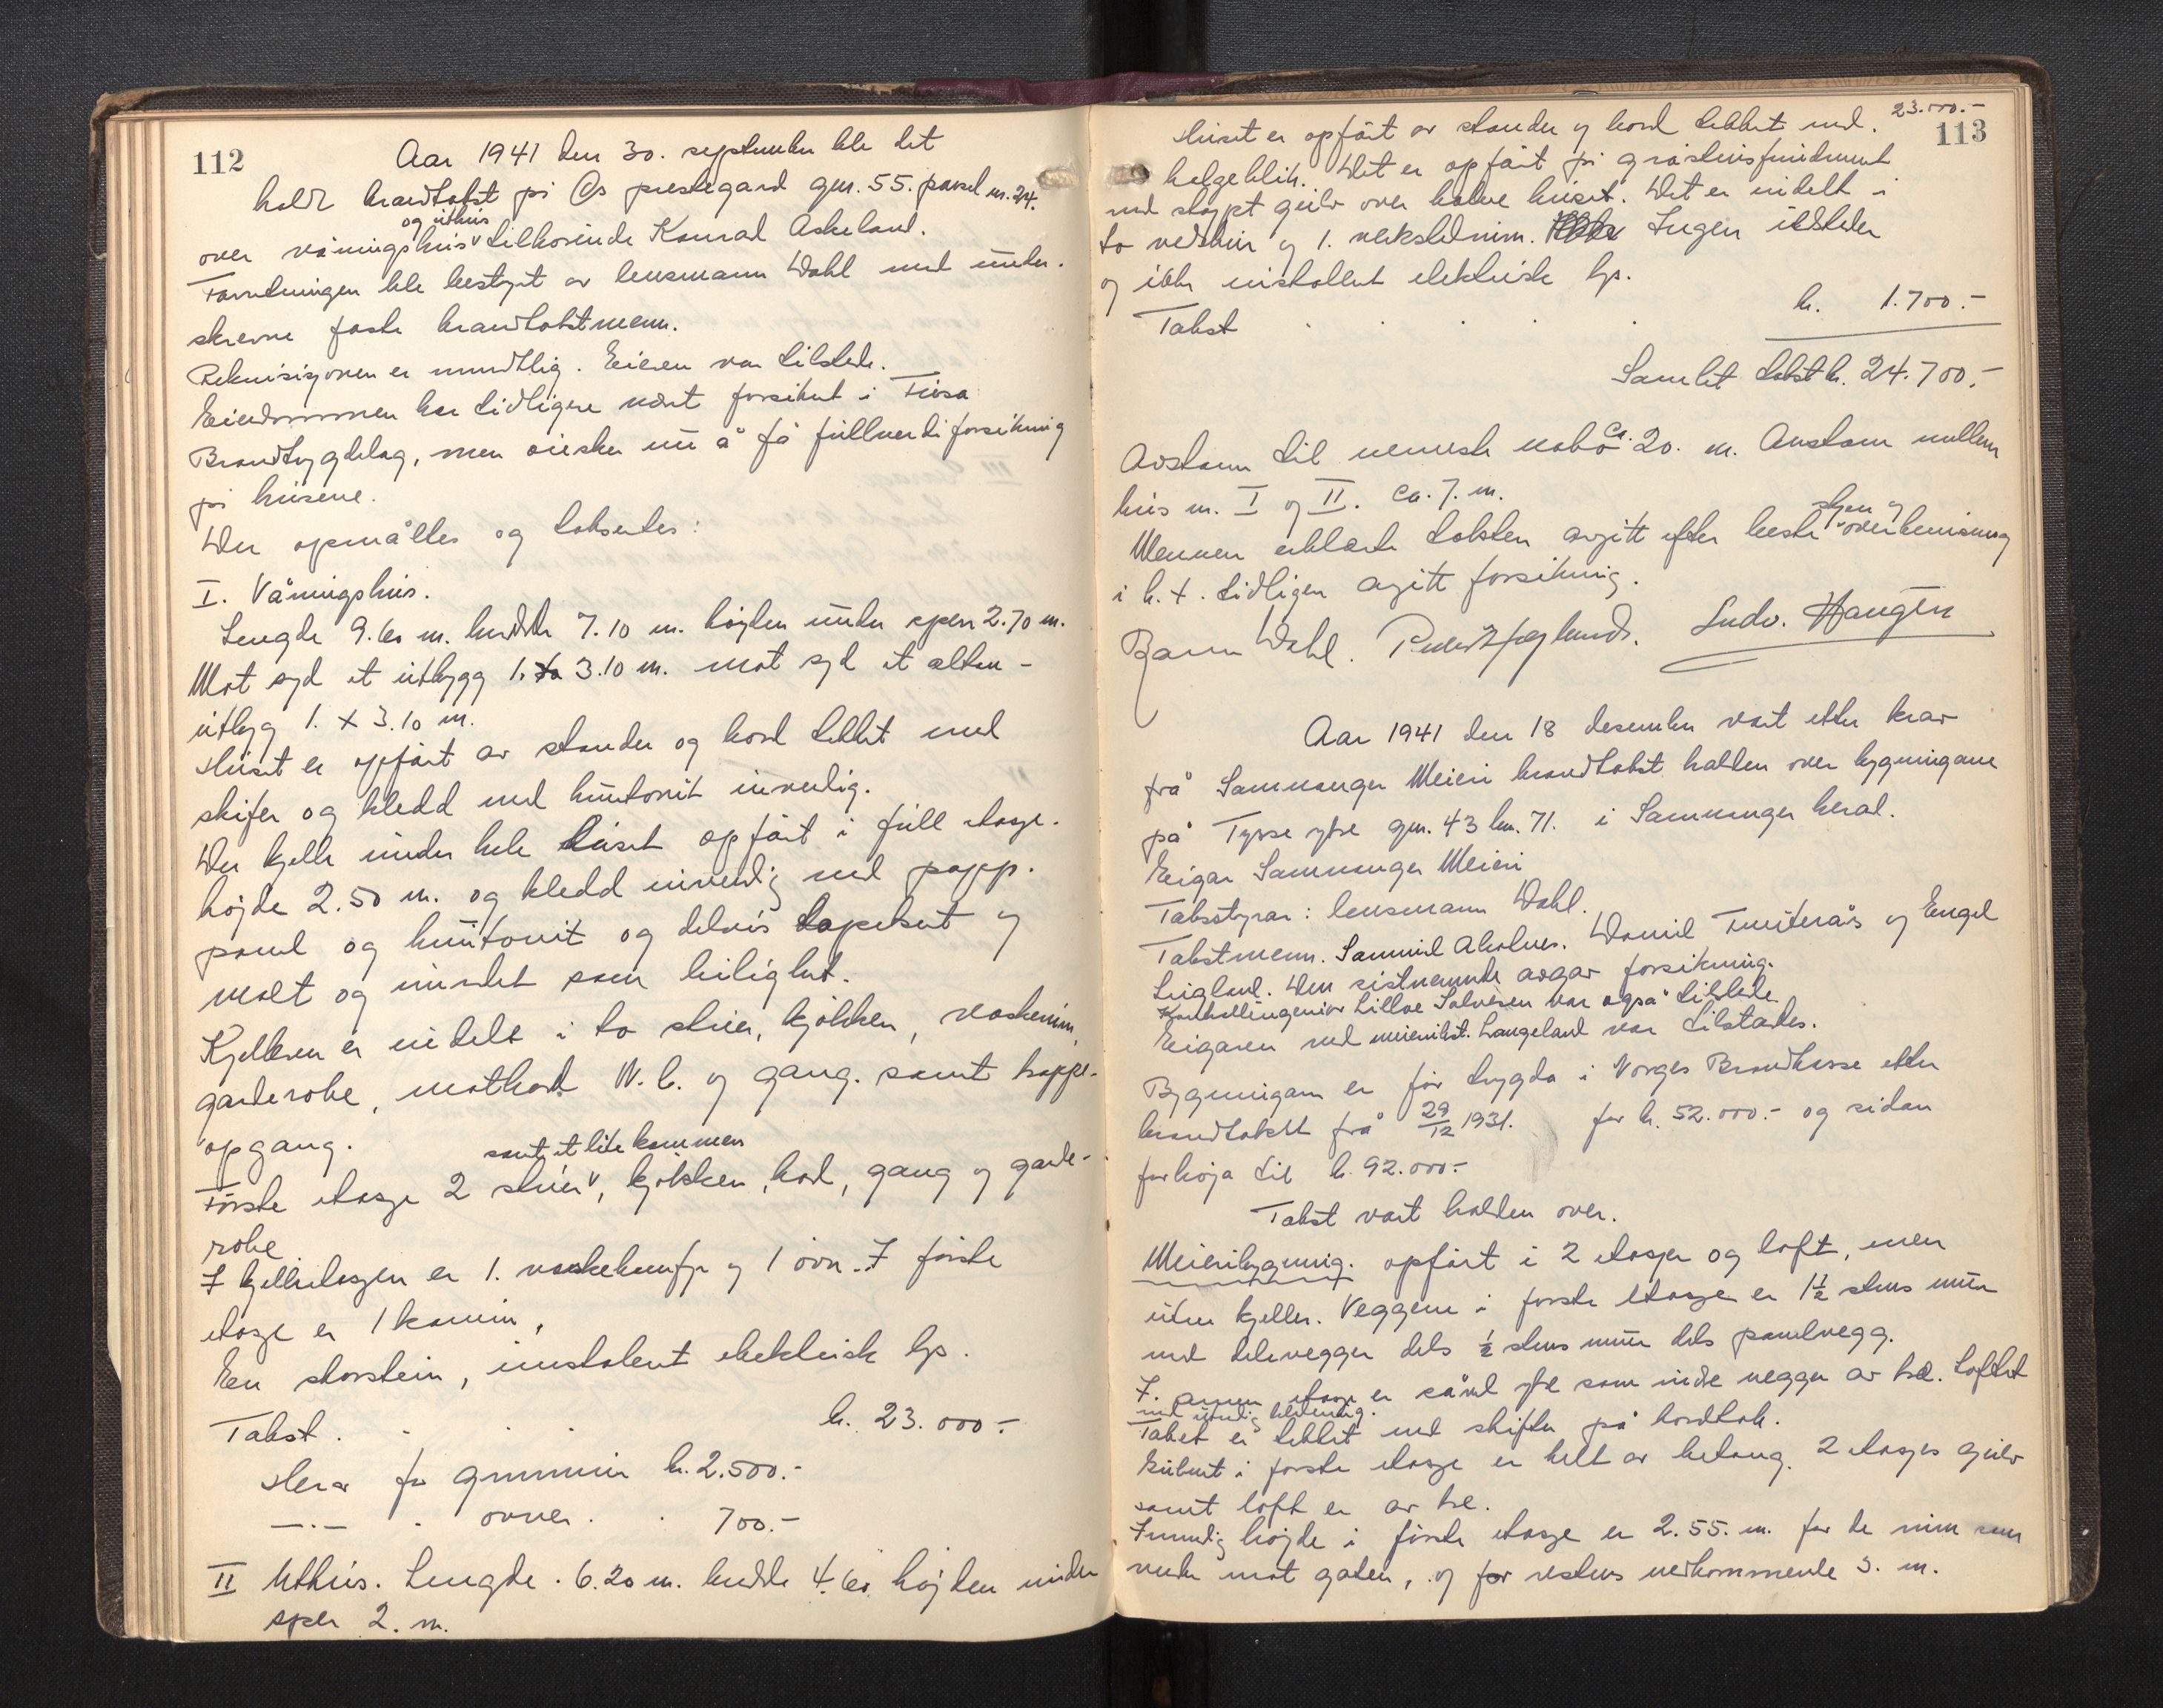 112
Aar 1941 den 30. september ble det
holdt brandtakst på Os prestegard gnr. 55. parsel nr. 24.
og uthus
over våningshus tilhorende Konrad Askeland.
Forretningen ble bestyrt av lensmann Dahl med under-
skrevne faste brandtakstmenn.
Rekvisisjonen er mundtlig. Eieren var tilstede.
Eiendommen har tidligere vært forsikret i Fusa
Brandtrygdelag, men ønsker nu å få fullverdiforsikring
på husene.
Der opmåltes og taksertes:
I. Våningshus.
Lengde 9.60 m. bredde 7.10 m. høyden under sper 2.70 m.
Mot syd et utbygg 1. x 3.10 m. mot syd et altan-
utbyg 1. x 3.10 m.
Huset er opført av stender og bord tekket med
skifer og kledd med huntonit inverdig.
Der kjeller under hele huset opført i full etasje-
højde 2.50 m. og kledd inverdig med papp.
panel og huntonit og delvis tapetsert og
malt og inredet som beilighet.
Kjelleren er indelt i to stuer, kjøkken, vaskerum,
garderobe, matbod W.C. og gang. samt trappe-
opgang.
samt et lite kammer
Første etasje 2 stuer, kjøkken, bad, gang og garde-
robe
I kjelleretasjen er 1. vaskekomfyr og 1 ovn. I første
etasje er 1 kamin,
En skorstein, innstalert elektrisk lys.
Takst . . . kr. 23.000.-
Herav for grunnmur kr. 2.500.-
—.— . ovner . . 700.-
II Uthus. Lengde . 6.20 m. bredde 4.60 højden under
sper 2. m.
113
23.000.-
Huset er opført av stender og bord tekket med
bølgeblik. Det er opført på gråstensfundament
med støypt gulv over halve huset. Det er indelt i
to vedbur og 1. verkstedrum. Ingen ildsteder
og ikke innstallert elektrisk lys.
Takst . . . . kr. 1.700.-
Samlet takst kr. 24.700.-
Avstann til nermeste nabo ca. 20. m. Avstann mellem
hus nr. I og II. ca. 7. m.
skjøn og
Mennen erklærte taksten avgitt efter beste overbevisning
i h.t. tidligere avgitt forsikring.
Bjarne Dahl. Ludv. Haugen
Aar 1941 den 18 desember vart etter krav
frå Samnanger Meieri brandtakst halden over bygningane
på Tysse ytre gnr. 43 bnr. 71. i Samnanger herad.
Eigar Samnanger Meieri
Takststyrar: lensmann Dahl.
Takstmenn. Samuel Aholmer. Daniel Tveiterås og Engel
Leigland. Den sistnemnde avgav forsikring.
Kontrollingeniør Lilloe Salvesen var også tilstede.
Eigaren ved meieribest. Langeland var tilstades.
Bygningane er før trygda i Norges Brandkasse etter
brandtakst frå 29/12 1931. for kr. 52.000.- og sidan
forhøja til kr. 92.000.-
Takst vart halden over.
Meieribygning. opført i 2 etasjer og loft, men
uten kjeller. Veggene i første etasje er 1½ stens mur
med delevegger dels ½ stens mur dels panelvegg.
I. annen etasje er såvel ytre som indre vegger av tre. Loftet
med utvendig kledning.
Taket er tekket med skifer på bordtak.
Gulvet i første etasje er helt av betong. 2 etasjes gulv
samt loft er av tre.
Innvendig højde i første etasje er 2.55. m. for de rum som
vender mot gaten, og for restens vedkommende 3. m.